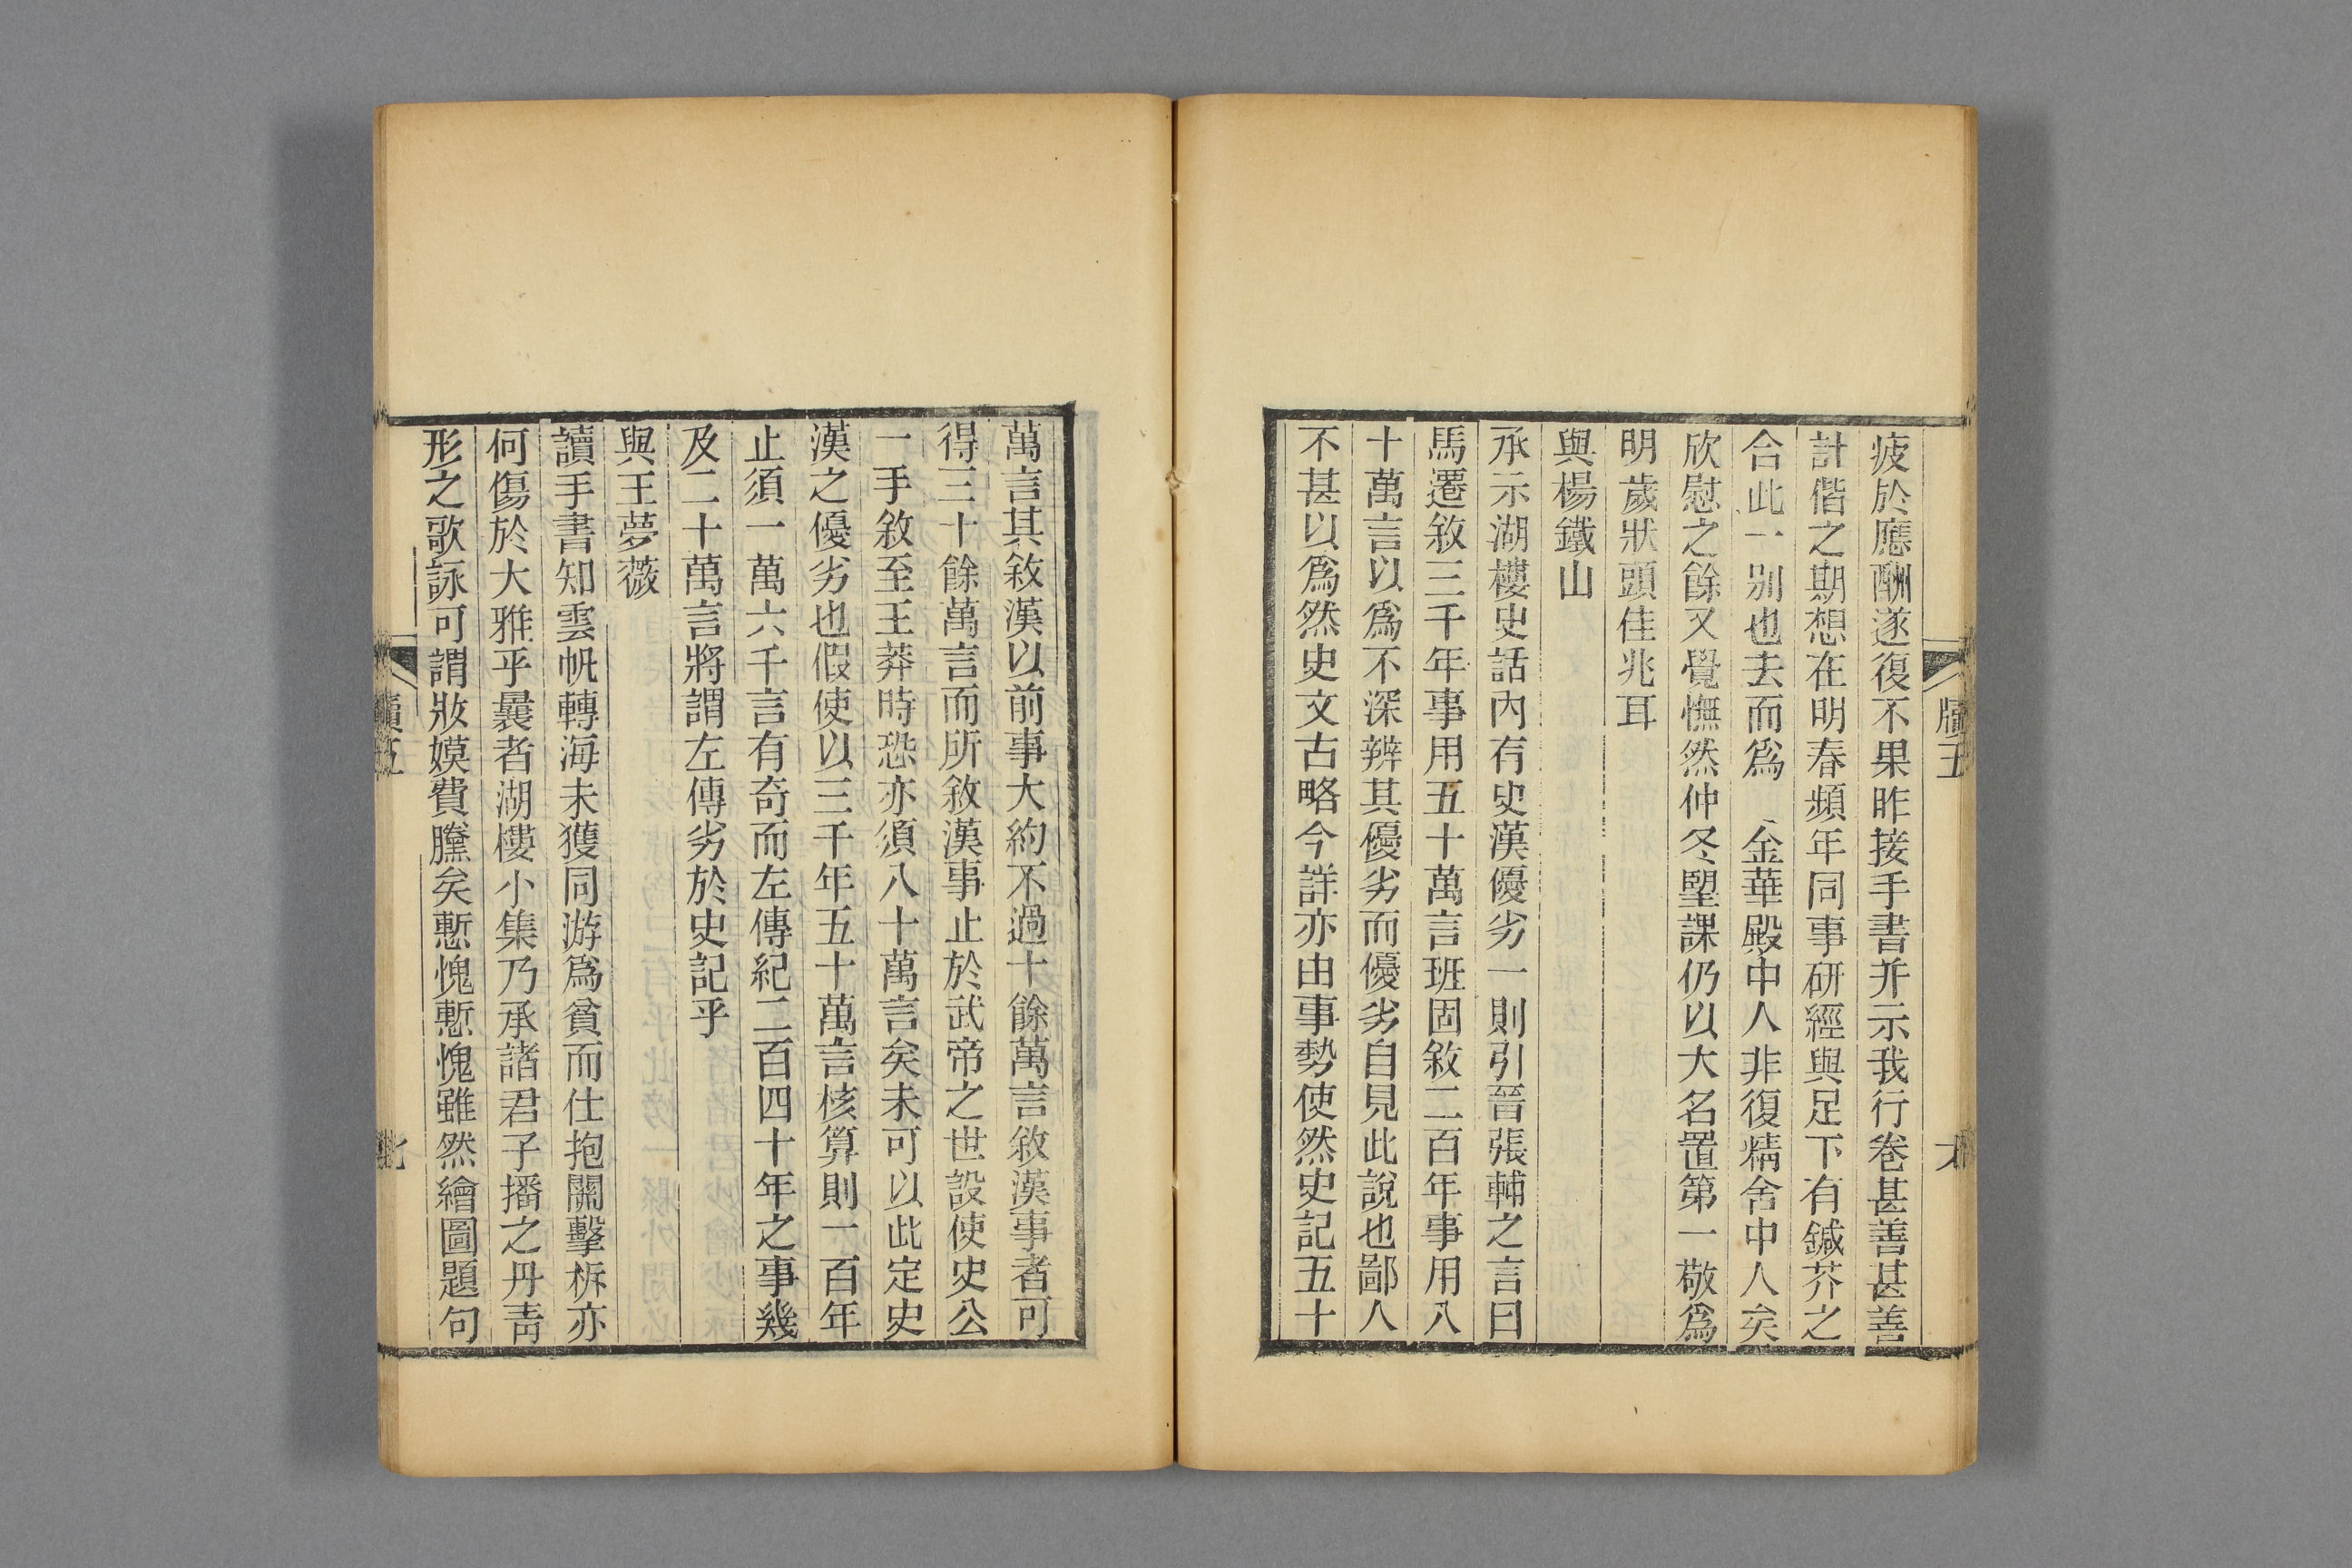 疲於應酬遂復不果昨接手書并示我行卷甚善甚善
計偕之期想在明春頻年同事研經與足下有鍼芥之
合此一别也去而爲 金華殿中人非復精舍中人矣
欣慰之餘又覺憮然仲冬朢課仍以大名置第一敬爲
明歲狀頭佳兆耳
與楊鐵山
承示湖樓史話內有史漢優劣一則引晉張輔之言曰
馬遷敘三千年事用五十萬言班固敘二百年事用八
十萬言以爲不深辨其優劣而優劣自見此說也鄙人
不甚以爲然史文古略今詳亦由事勢使然史記五十
萬言其敘漢以前事大約不過十餘萬言敘漢事者可
得三十餘萬言而所敘漢事止於武帝之世設使史公
一手敘至王莽時恐亦須八十萬言矣未可以此定史
漢之優劣也假使以三千年五十萬言核算則一百年
止須一萬六千言有奇而左傳紀二百四十年之事幾
及二十萬言將謂左傳劣於史記乎
與王夢薇
讀手書知雲帆轉海未獲同游爲貧而仕抱關擊柝亦
何傷於大雅乎曩者湖樓小集乃承諸君子播之丹青
形之歌詠可謂妝嫫費黱矣慙愧慙愧雖然繪圖題句
牘五